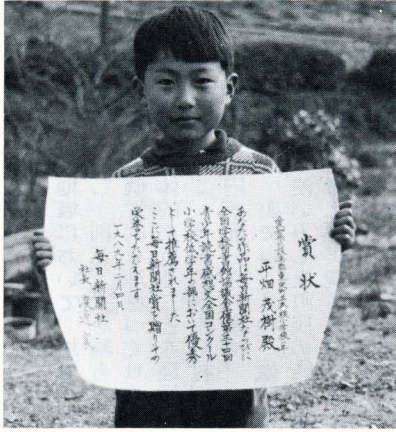 賞状
平畑茂樹殿
あなたの作品は毎日新聞社ならびに
全国学校図書館協議会主催第三十四回
青少年読書感想文全国コンクール
小学校低学年の部において優秀
として推薦されました
ここに毎日新聞社賞を贈りその
栄誉をたたえます
一九八九年
毎日新聞社
社長 渡邉襄